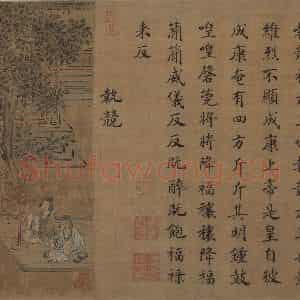 維烈不顯成康上帝是皇自彼
成康奄有四方斤斤其明鍾鼓
喤喤磬筦將將降福穰穰降福
簡簡威儀反反既醉既飽福祿
来反
執競
Shufawang.cn